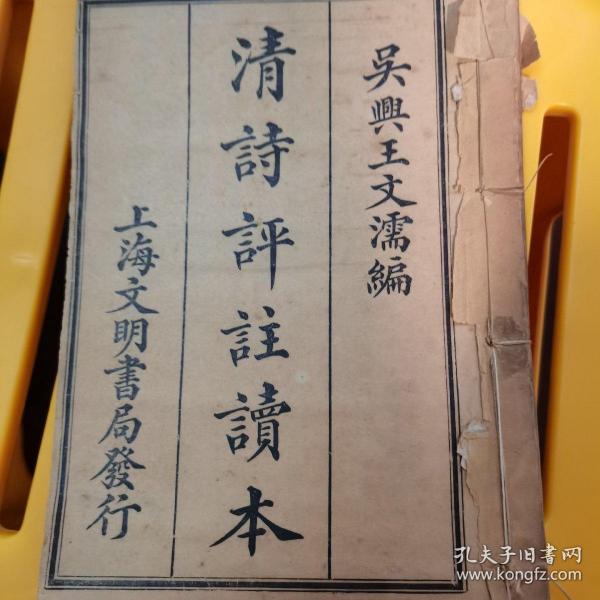 吳興王文濡編
清詩評註讀本
上海文明書局發行
孔夫子旧书网
www.kongfz.com